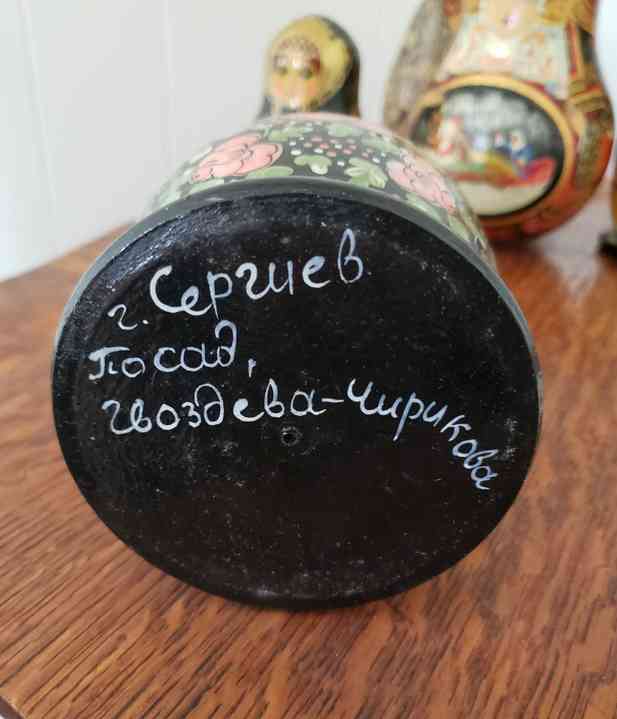 г. Сергиев
Посад,
Гвоздева-Чирикова